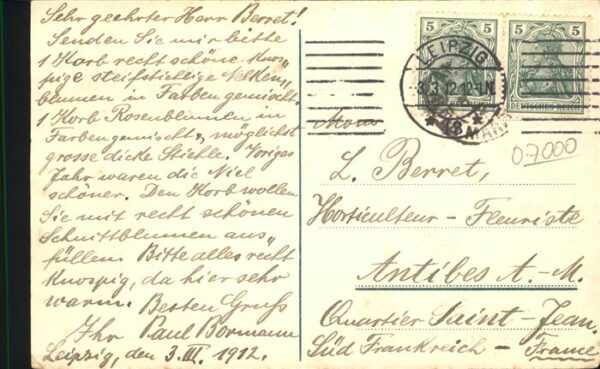 Sehr geehrter Herr Berret!
Senden Sie mir bitte
1 Korb recht schöne knos„
pige steifstichlige Nelken„
blumen in Farben gemischt.
1 Korb Rosenblumen in
Farben gemischt, möglichst
grosse dicke Stiehle. Voriges
Jahr waren die Niel
schöner. Den Korb wollen
Sie mit recht schönen
Schnittblumen aus„
füllen. Bitte alles recht
knospig, da hier sehr
warm. Besten Gruß
Ihr Paul Bormann
Leipzig, den 3. III. 1912.
5 5
DEUTSCHES REICH
LEIPZIG
3.3.12.12-1N.
* 13
07000
L. Berret,
Horticulteur - Fleuriste
Antibes A.-M.
Quartier Saint-Jean.
Süd Frankreich - France